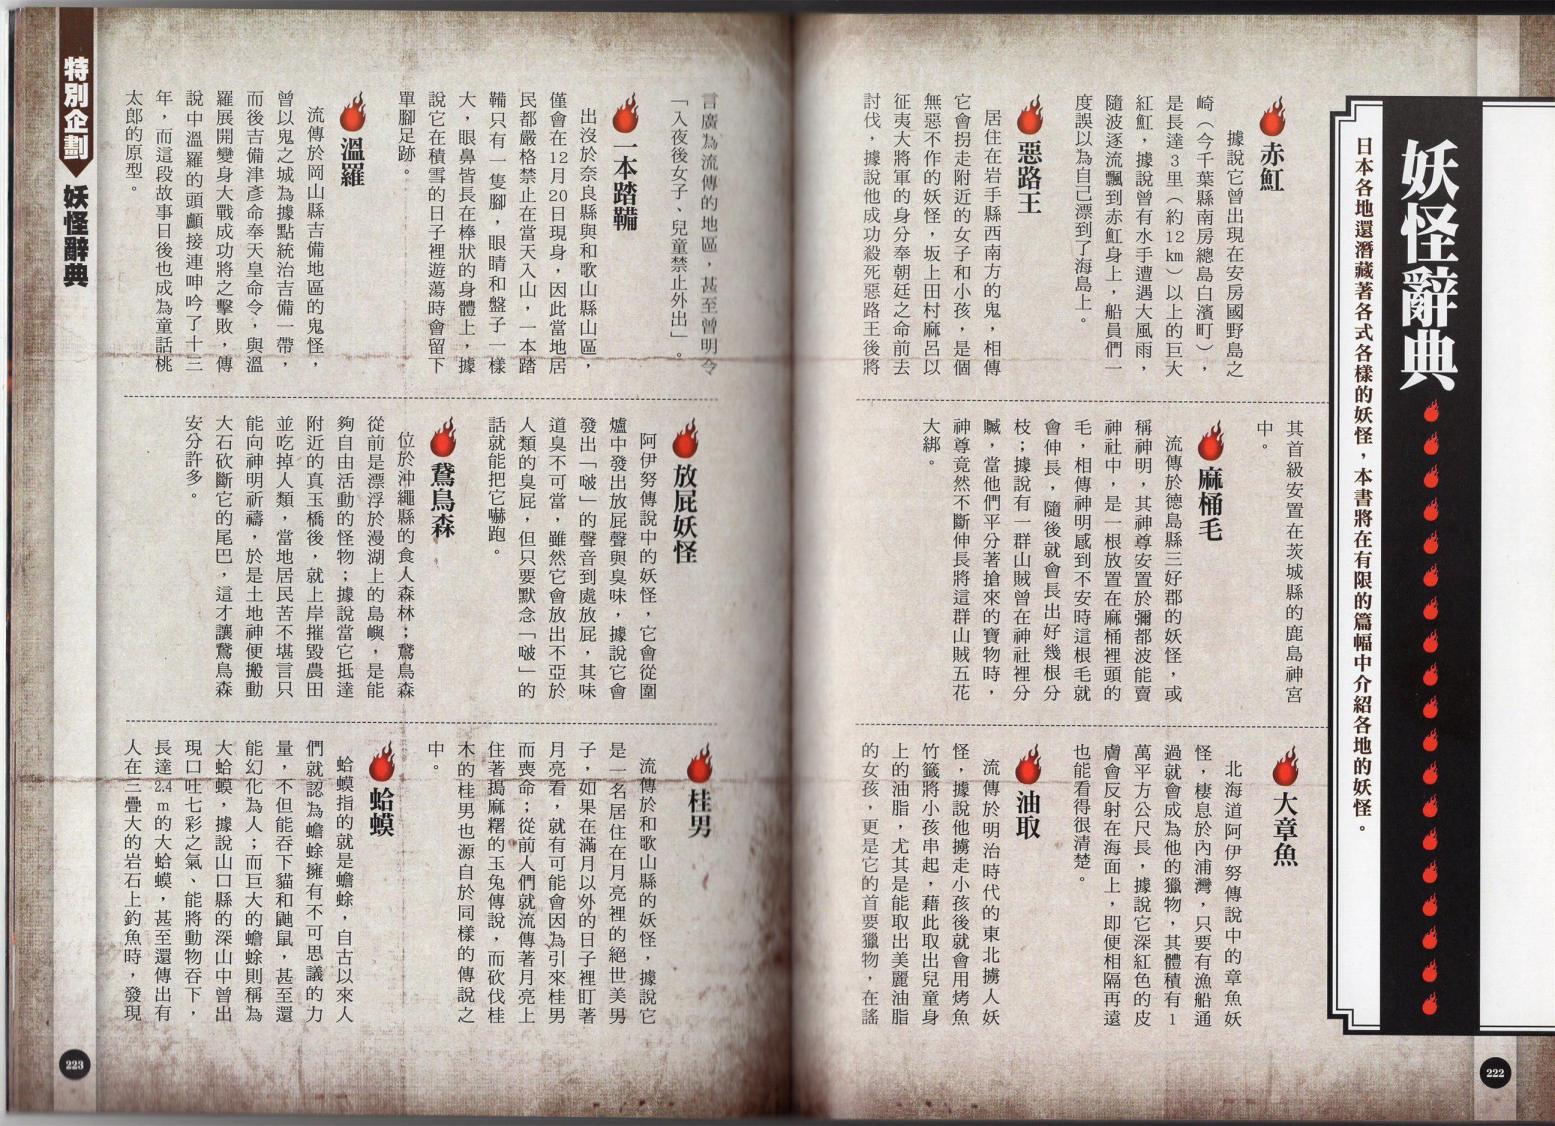 妖怪辭典
日本各地還潛藏著各式各樣的妖怪，本書將在有限的篇幅中介紹各地的妖怪。
赤魟
據說它曾出現在安房國野島之
崎（今千葉縣南房總島白濱町），
是長達3里（約12km）以上的巨大
紅魟，據說曾有水手遭遇大風雨，
隨波逐流飄到赤魟身上，船員們一
度誤以為自己漂到了海島上。
惡路王
居住在岩手縣西南方的鬼，相傳
它會拐走附近的女子和小孩，是個
無惡不作的妖怪，坂上田村麻呂以
征夷大將軍的身分奉朝廷之命前去
討伐，據說他成功殺死惡路王後將
其首級安置在茨城縣的鹿島神宮
中。
麻桶毛
流傳於德島縣三好郡的妖怪，或
稱神明，其神尊安置於彌都波能賣
神社中，是一根放置在麻桶裡頭的
毛，相傳神明感到不安時這根毛就
會伸長，隨後就會長出好幾根分
枝；據說有一群山賊曾在神社裡分
贓，當他們平分著搶來的寶物時，
神尊竟然不斷伸長將這群山賊五花
大綁。
大章魚
北海道阿伊努傳說中的章魚妖
怪，棲息於內浦灣，只要有漁船通
過就會成為他的獵物，其體積有1
萬平方公尺長，據說它深紅色的皮
膚會反射在海面上，即便相隔再遠
也能看得很清楚。
油取
流傳於明治時代的東北擄人妖
怪，據說他擄走小孩後就會用烤魚
竹籤將小孩串起，藉此取出兒童身
上的油脂，尤其是能取出美麗油脂
的女孩，更是它的首要獵物，在謠
222
言廣為流傳的地區，甚至曾明令
「入夜後女子、兒童禁止外出」。
一本踏鞴
出沒於奈良縣與和歌山縣山區，
僅會在12月20日現身，因此當地居
民都嚴格禁止在當天入山，一本踏
鞴只有一隻腳，眼睛和盤子一樣
大，眼鼻皆長在棒狀的身體上，據
說它在積雪的日子裡遊蕩時會留下
單腳足跡。
溫羅
流傳於岡山縣吉備地區的鬼怪，
曾以鬼之城為據點統治吉備一帶，
而後吉備津彥命奉天皇命令，與溫
羅展開變身大戰成功將之擊敗，傳
說中溫羅的頭顱接連呻吟了十三
年，而這段故事日後也成為童話桃
太郎的原型。
放屁妖怪
阿伊努傳說中的妖怪，它會從圍
爐中發出放屁聲與臭味，據說它會
發出「啵」的聲音到處放屁，其味
道臭不可當，雖然它會放出不亞於
人類的臭屁，但只要默念「啵」的
話就能把它嚇跑。
鵞鳥森
位於沖繩縣的食人森林；鵞鳥森
從前是漂浮於漫湖上的島嶼，是能
夠自由活動的怪物；據說當它抵達
附近的真玉橋後，就上岸摧毀農田
並吃掉人類，當地居民苦不堪言只
能向神明祈禱，於是土地神便搬動
大石砍斷它的尾巴，這才讓鵞鳥森
安分許多。
桂男
流傳於和歌山縣的妖怪，據說它
是一名居住在月亮裡的絕世美男
子，如果在滿月以外的日子裡盯著
月亮看，就有可能會因為引來桂男
而喪命；從前人們就流傳著月亮上
住著搗麻糬的玉兔傳說，而砍伐桂
木的桂男也源自於同樣的傳說之
中。
蛤蟆
蛤蟆指的就是蟾蜍，自古以來人
們就認為蟾蜍擁有不可思議的力
量，不但能吞下貓和鼬鼠，甚至還
能幻化為人；而巨大的蟾蜍則稱為
大蛤蟆，據說山口縣的深山中曾出
現口吐七彩之氣、能將動物吞下，
長達2.4m的大蛤蟆，甚至還傳出有
人在三疊大的岩石上釣魚時，發現
特別企劃 妖怪辭典
223